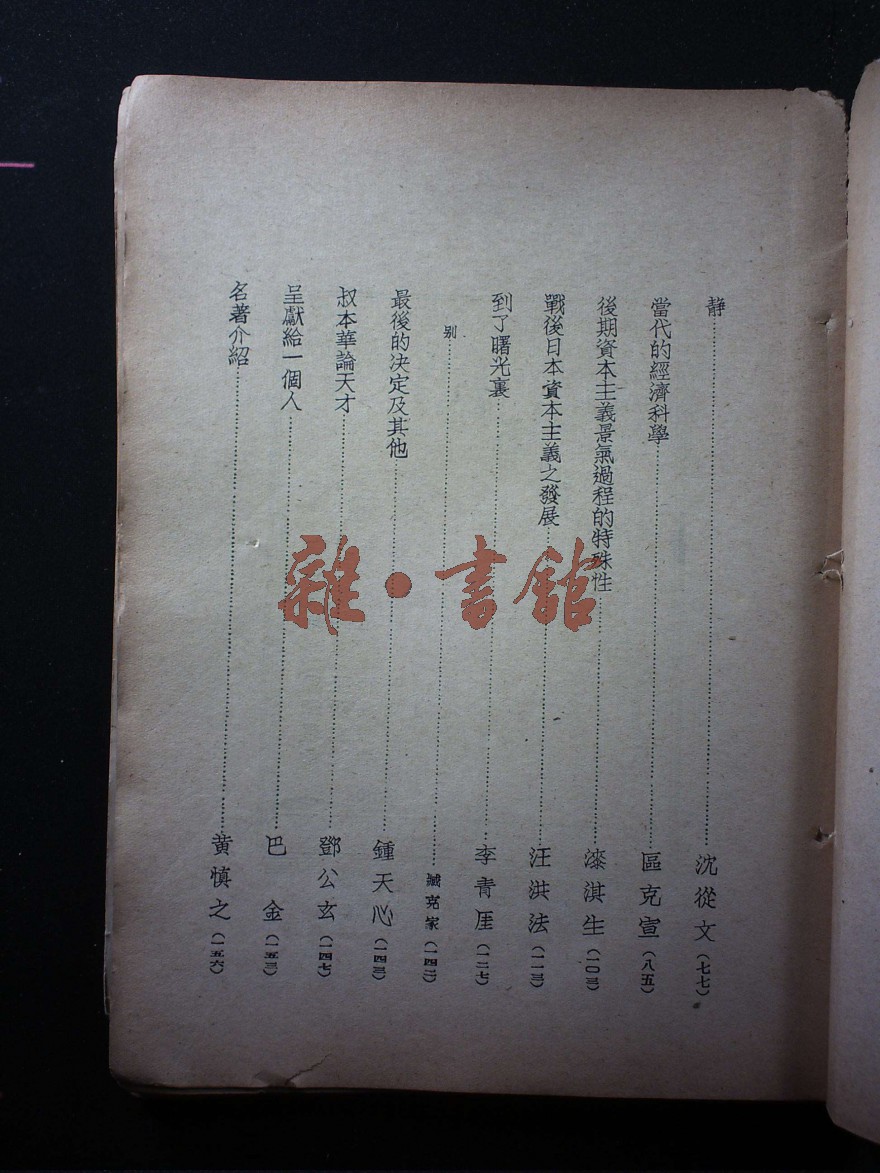 靜……沈從文(七七)
當代的經濟科學……區克宣(八五)
後期資本主義景氣過程的特殊性……漆淇生(一〇三)
戰後日本資本主義之發展……汪洪法(一一三)
到了曙光裏……李青厓(一二七)
别……臧克家(一四二)
最後的決定及其他……鍾天心(一四三)
叔本華論天才……鄧公玄(一四七)
呈獻給一個人……巴金(一五三)
名著介紹……黄慎之(一五六)
雜•書館